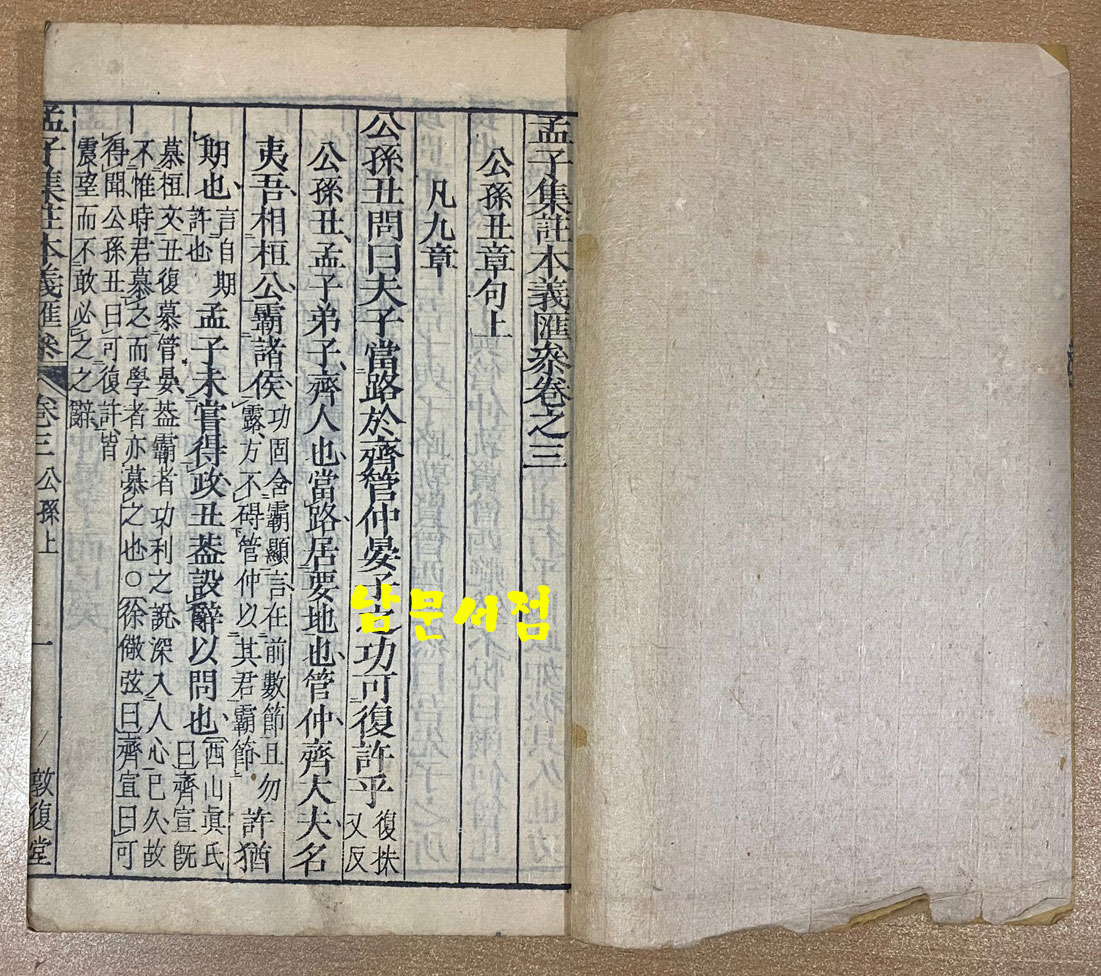 孟子集註本義匯叅卷之三
公孫丑章句上
凡九章
公孫丑問曰夫子當路於齊管仲晏子之功可復許乎復扶
又反
公孫丑孟子弟子齊人也當路居要地也管仲齊大夫名
夷吾相桓公霸諸侯功固含霸顯言在前數節且勿
露方不碍管仲以其君霸節許猶
期也言自期
許也孟子未嘗得政丑葢設辭以問也西山眞氏
曰齊宣旣
慕桓文丑復慕管晏葢霸者功利之說深入人心已久故
不惟時君慕之而學者亦慕之也○徐儆弦曰齊宣曰可
得聞公孫丑曰可復許皆
震望而不敢必之之辭
孟子集註本義匯叅 卷三 公孫上 一 敦復堂
남문서점